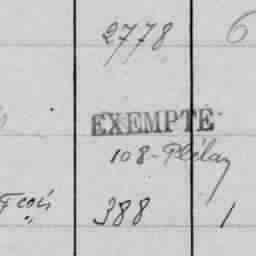 2778 6
EXEMPTÉ
108-Plélan
388 1